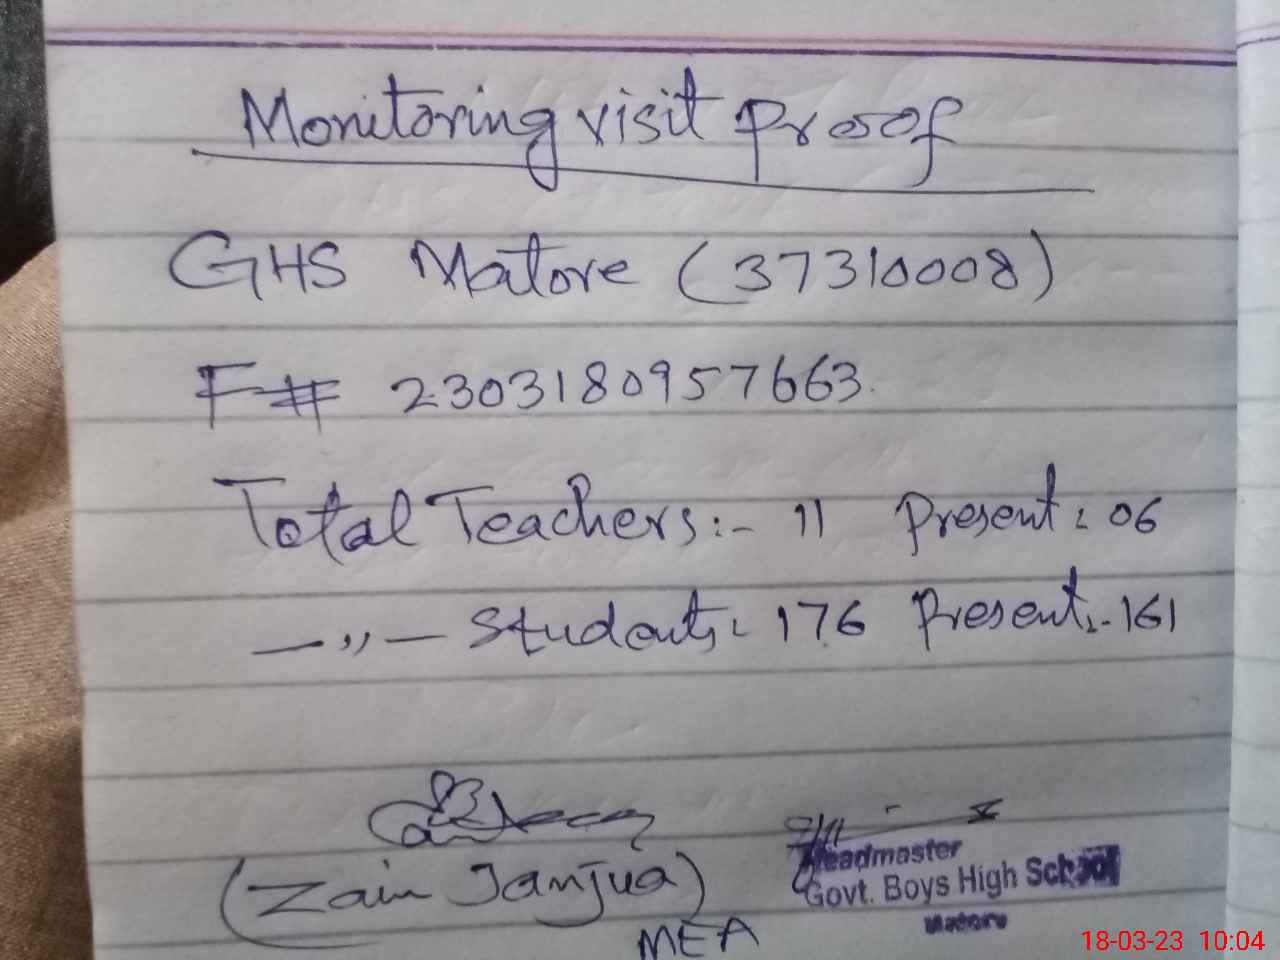 Monitoring visit Proof
GHS Matore (37310008)
F# 2303180957663.
Total Teachers:- 11 Present: 06
—,,— Students: 176 Present:-161
(Zain Janjua)
MEA
Headmaster
Govt. Boys High School
Matore
18-03-23 10:04